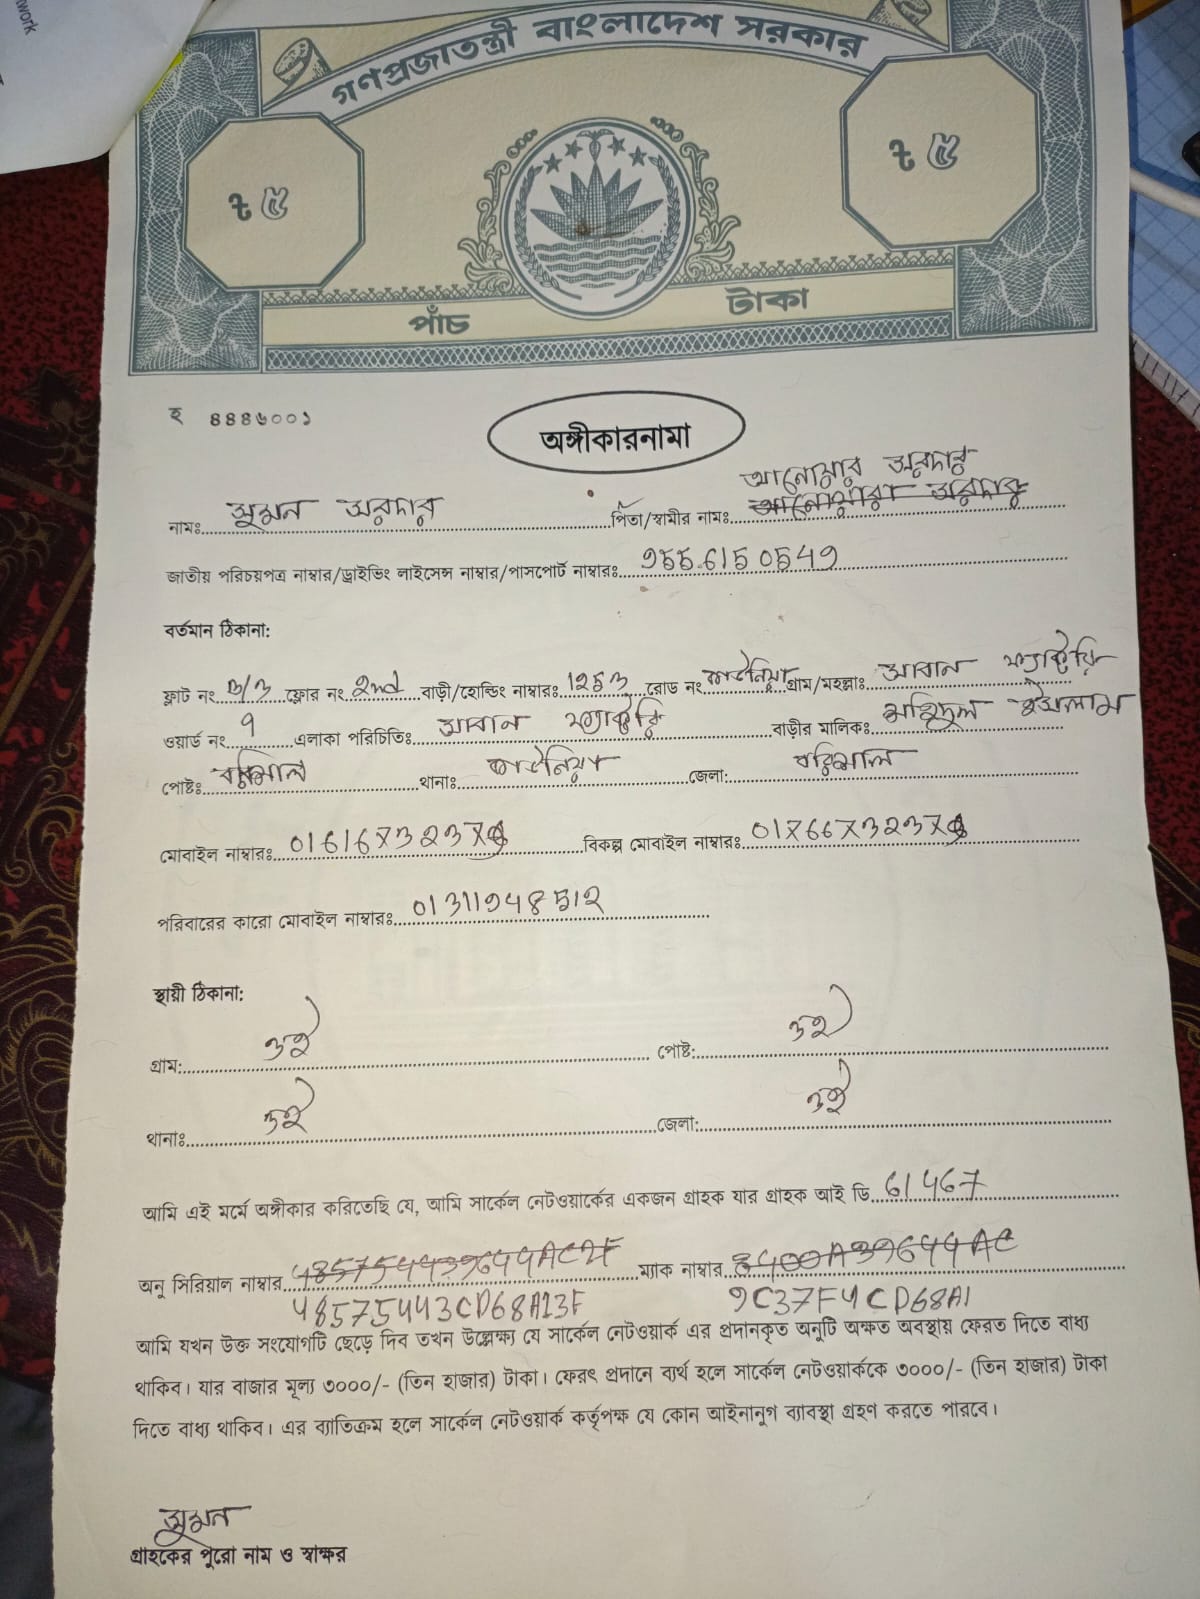 work
গণপ্রজাতন্ত্রী বাংলাদেশ সরকার
৳ ৫
৳ ৫
পাঁচ টাকা
হ ৪৪৪৬০০১
অঙ্গীকারনামা
আনোয়ার সরদার
নামঃ সুমন সরদার পিতা/স্বামীর নামঃ আনোয়ারা সরদার
জাতীয় পরিচয়পত্র নাম্বার/ড্রাইভিং লাইসেন্স নাম্বার/পাসপোর্ট নাম্বারঃ 9556150549
বর্তমান ঠিকানা:
ফ্লাট নং ফ্লোর নং 2nd বাড়ী/হোল্ডিং নাম্বারঃ রোড নং কাউনিয়া গ্রাম/মহল্লাঃ সাবান ফ্যাক্টরি
ওয়ার্ড নং এলাকা পরিচিতিঃ সাবান ফ্যাক্টরি বাড়ীর মালিকঃ ইসলাম
পোষ্টঃ বরিশাল থানাঃ কাউনিয়া জেলা: বরিশাল
মোবাইল নাম্বারঃ বিকল্প মোবাইল নাম্বারঃ
পরিবারের কারো মোবাইল নাম্বারঃ 01311948512
স্থায়ী ঠিকানা:
গ্রাম: ঐ পোষ্ট: ঐ
থানাঃ ঐ জেলা: ঐ
আমি এই মর্মে অঙ্গীকার করিতেছি যে, আমি সার্কেল নেটওয়ার্কের একজন গ্রাহক যার গ্রাহক আই ডি 61467
অনু সিরিয়াল নাম্বার ম্যাক নাম্বার
48575443CD68A13F 9C37F4CD68A1
আমি যখন উক্ত সংযোগটি ছেড়ে দিব তখন উল্লেক্ষ্য যে সার্কেল নেটওয়ার্ক এর প্রদানকৃত অনুটি অক্ষত অবস্থায় ফেরত দিতে বাধ্য
থাকিব। যার বাজার মূল্য ৩০০০/- (তিন হাজার) টাকা। ফেরৎ প্রদানে ব্যর্থ হলে সার্কেল নেটওয়ার্ককে ৩০০০/- (তিন হাজার) টাকা
দিতে বাধ্য থাকিব। এর ব্যতিক্রম হলে সার্কেল নেটওয়ার্ক কর্তৃপক্ষ যে কোন আইনানুগ ব্যাবস্থা গ্রহণ করতে পারবে।
সুমন
গ্রাহকের পুরো নাম ও স্বাক্ষর